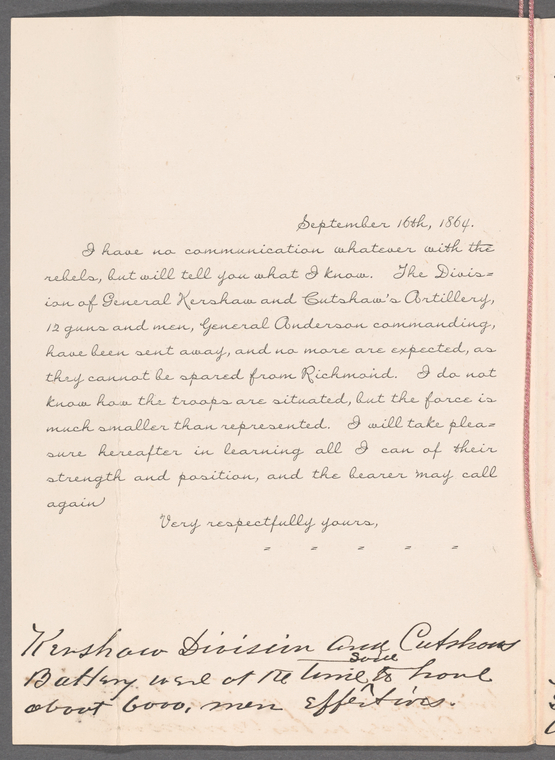 September 16th, 1864.
I have no communication whatever with the
rebels, but will tell you what I know. The Divis=
ion of General Kershaw and Cutshaw's Artillery,
12 guns and men, General Anderson commanding,
have been sent away, and no more are expected, as
they cannot be spared from Richmond. I do not
know how the troops are situated, but the force is
much smaller than represented. I will take plea=
sure hereafter in learning all I can of their
strength and position, and the bearer may call
again
Very respectfully yours,
- - - - -
Kershaw Division and Cutshaws
said
Battery were at the time to have
about 6000, men effectives.